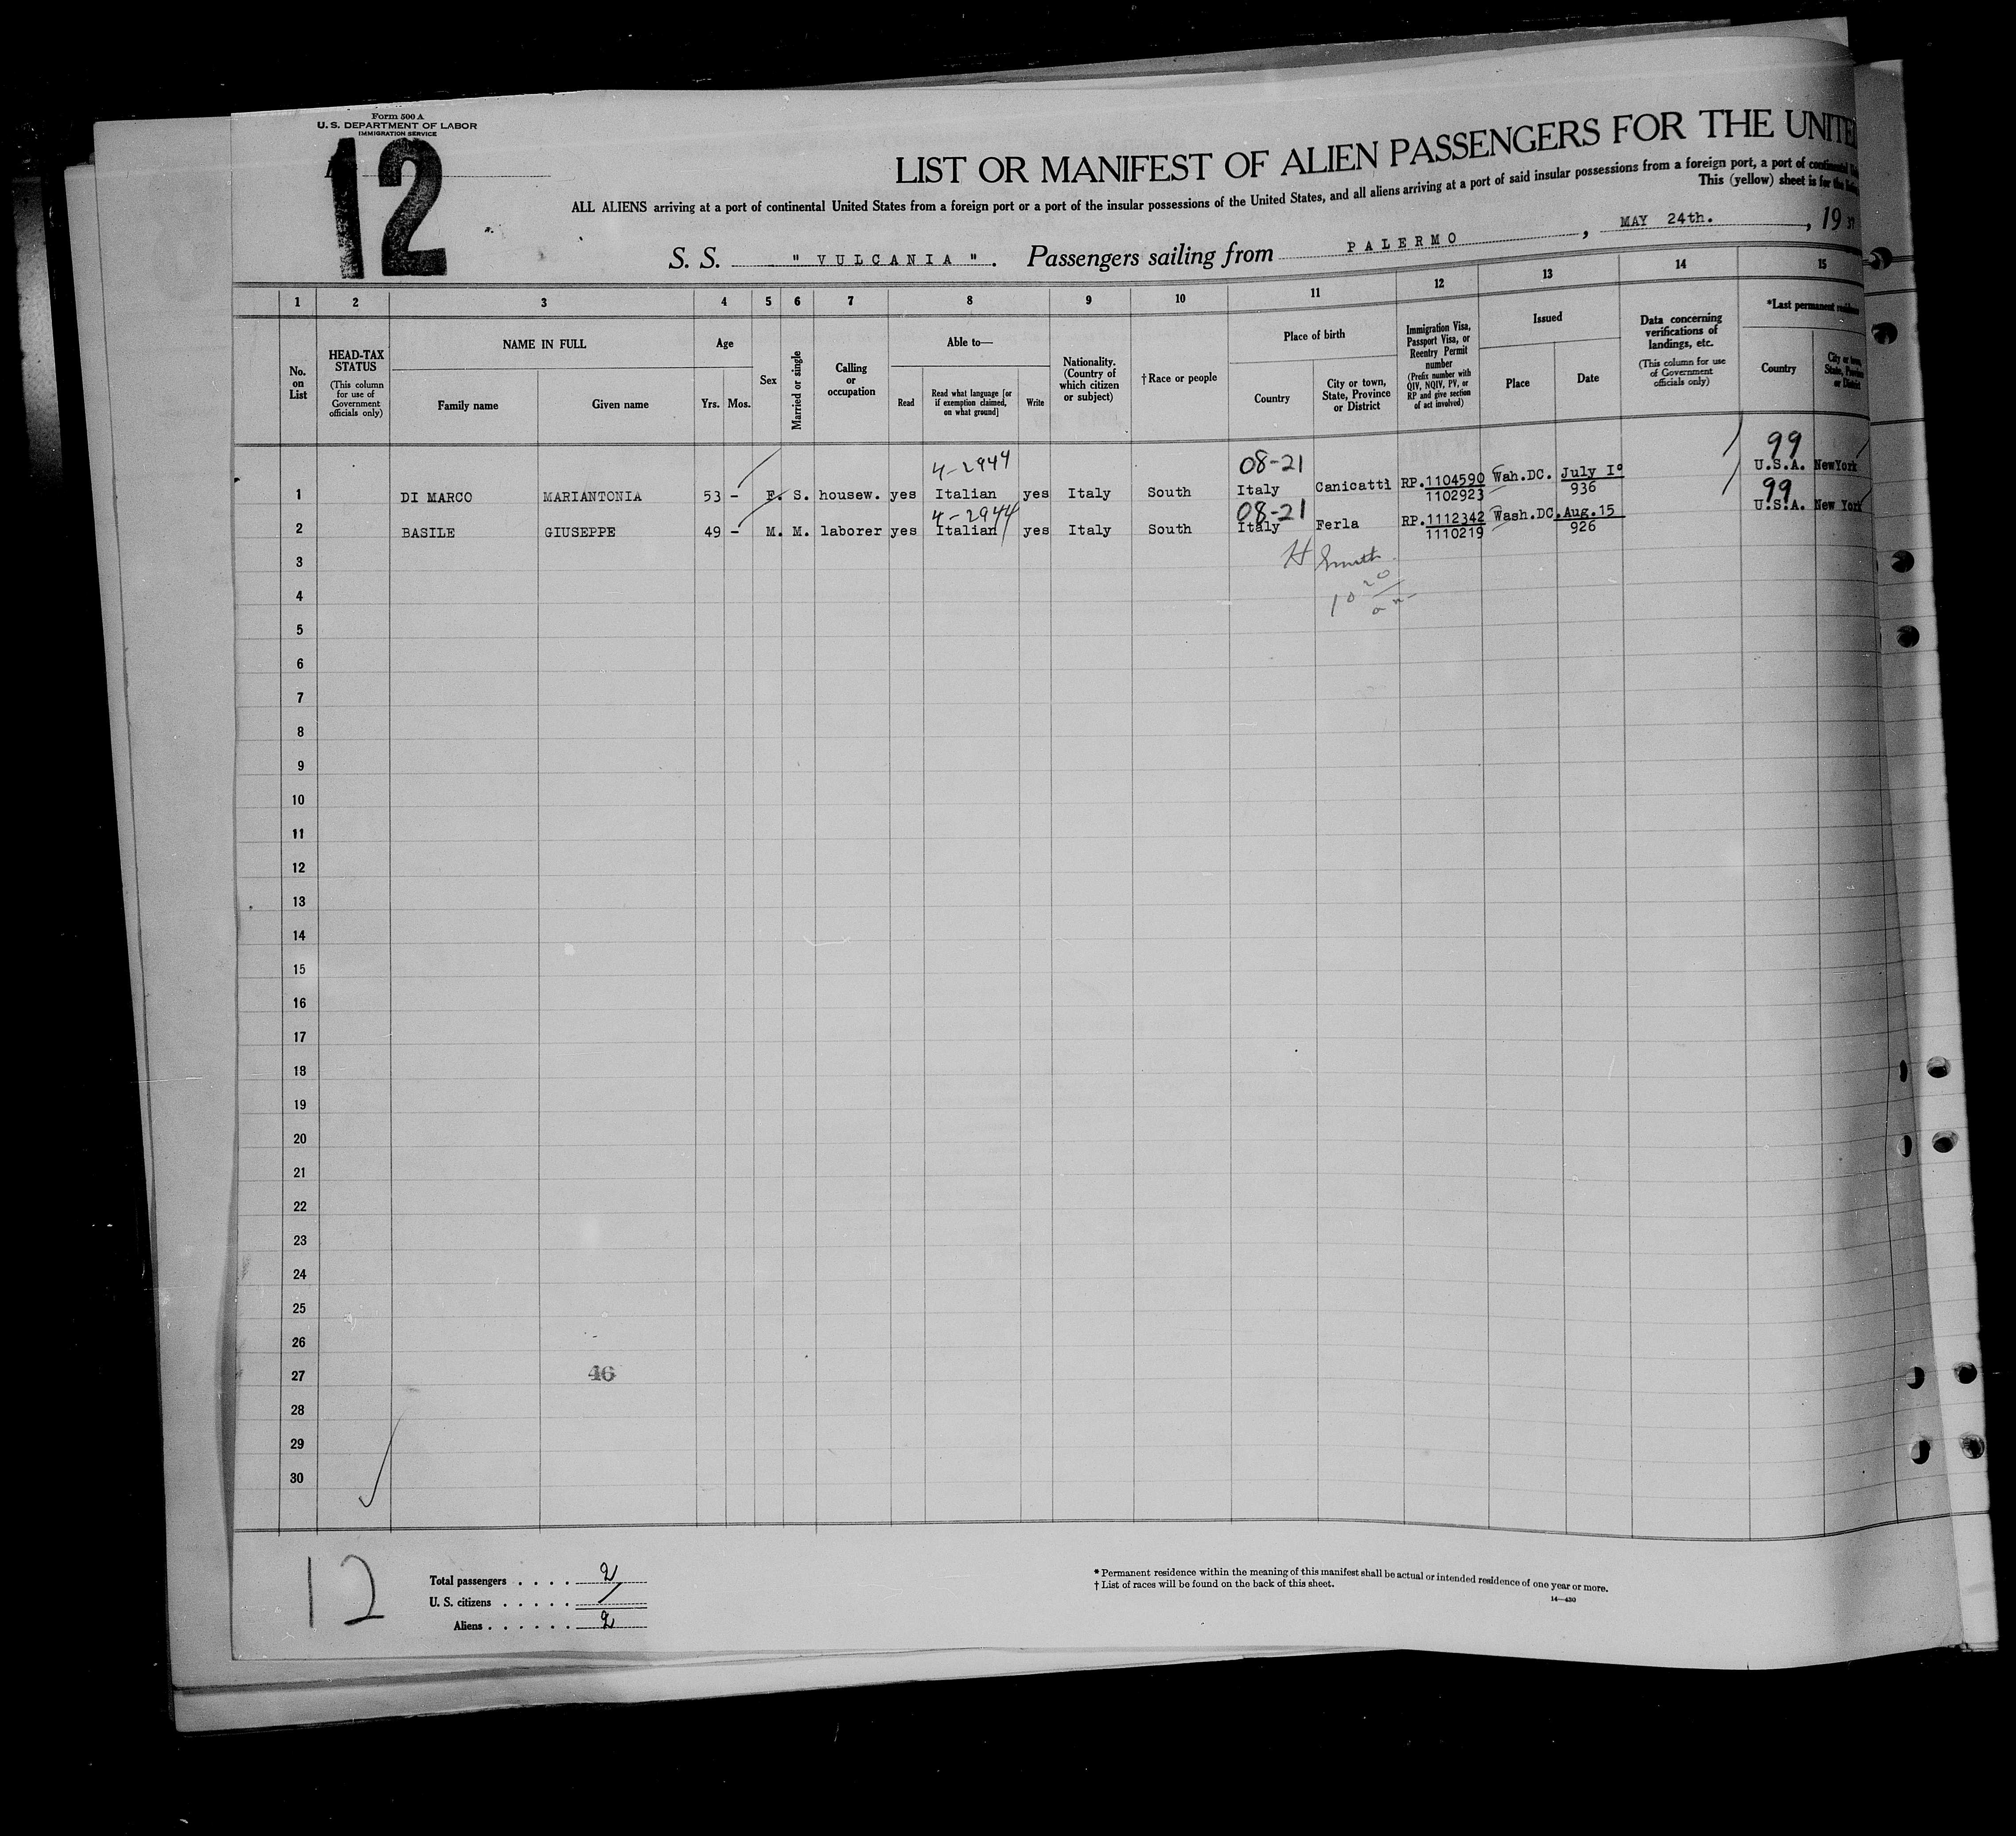 Form 500 A
U. S. DEPARTMENT OF LABOR
IMMIGRATION SERVICE
12
LIST OR MANIFEST OF ALIEN PASSENGERS FOR THE UNITE
ALL ALIENS arriving at a port of continental United States from a foreign port or a port of the insular possessions of the United States, and all aliens arriving at a port of said insular possessions from a foreign port, a port of continental
This (yellow) sheet is for the
S. S. " VULCANIA " . Passengers sailing from PALERMO , MAY 24th. , 19 37
1 2 3 4 5 6 7 8 9 10 11 12 13 14 15
No. on List
HEAD-TAX STATUS
(This column for use of Government officials only)
NAME IN FULL
Family name Given name
Age
Yrs. Mos.
Sex
Married or single
Calling or occupation
Able to—
Read
Read what language [or if exemption claimed, on what ground]
Write
Nationality. (Country of which citizen or subject)
†Race or people
Place of birth
Country
City or town, State, Province or District
Immigration Visa, Passport Visa, or Reentry Permit number
(Prefix number with QIV, NQIV, PV, or RP and give section of act involved)
Issued
Place Date
Data concerning verifications of landings, etc.
(This column for use of Government officials only)
*Last permanent
Country
City or town, State, Province or District
4-2944 08-21 99
1 DI MARCO MARIANTONIA 53 - F. S. housew. yes Italian yes Italy South Italy Canicatti RP.1104590 Wah.DC. July Iº U.S.A. NewYork
1102923 936
4-2944 08-21 99
2 BASILE GIUSEPPE 49 - M. M. laborer yes Italian yes Italy South Italy Ferla RP.1112342 Wash.DC. Aug.15 U.S.A. New York
1110219 926
3 H Smith
4 10 20/am
5
6
7
8
9
10
11
12
13
14
15
16
17
18
19
20
21
22
23
24
25
26
27 46
28
29
30
12
Total passengers . . . . 2
U. S. citizens . . . . . /
Aliens . . . . . . 2
* Permanent residence within the meaning of this manifest shall be actual or intended residence of one year or more.
† List of races will be found on the back of this sheet.
14—430